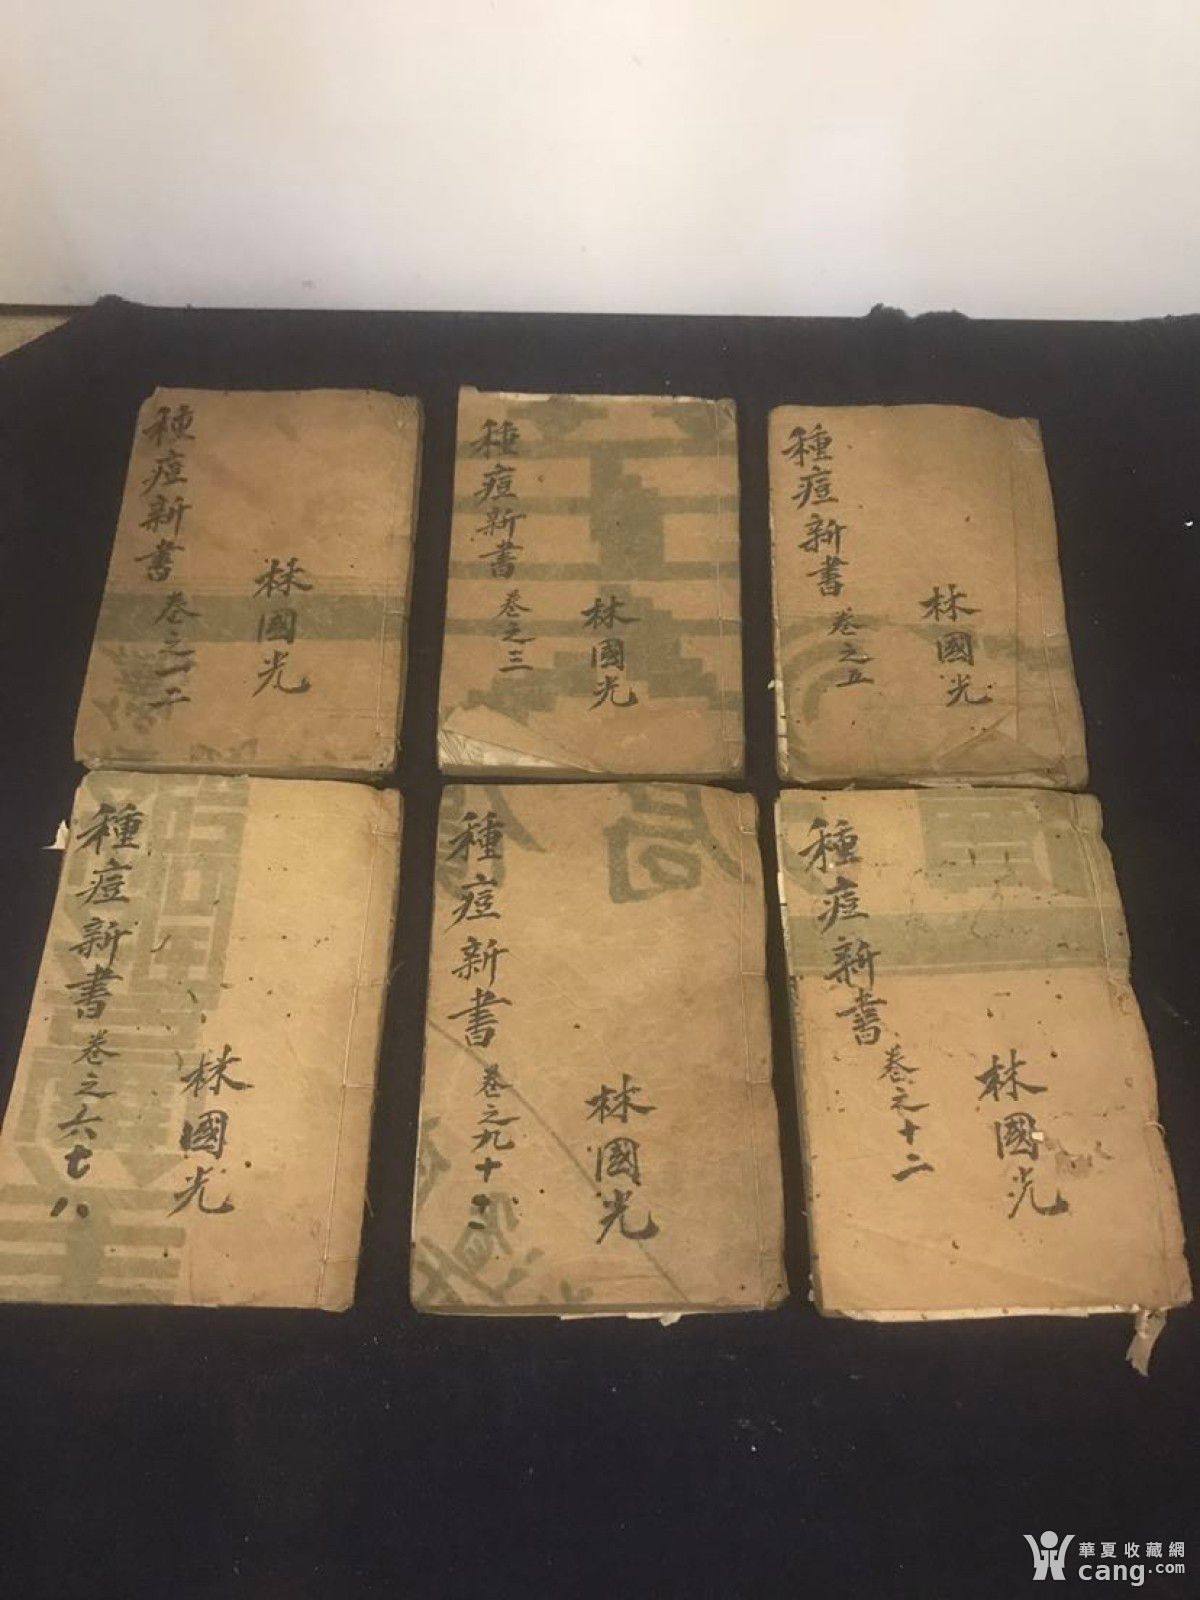 種痘新書 卷之一二
林國光
種痘新書 卷之三
林國光
種痘新書 卷之五
林國光
種痘新書 卷之六七八
林國光
局
種痘新書 卷之九十十一
林國光
種痘新書 卷之十二
林國光
華夏收藏網
cang.com